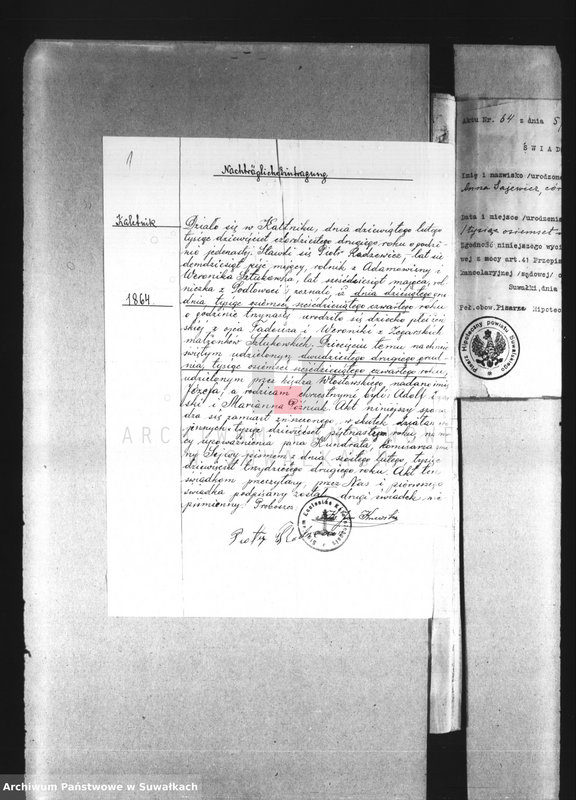 1
Nachträgliche Eintragung
Kaletnik
1864
Działo się w Kaletniku, dnia dziewiątego lutego
tysiąc dziewięćset czterdziestego drugiego roku o godzi-
nie jedenastej. Stawili się Piotr Radzewicz, lat sie-
demdziesiąt mający, rolnik z Adamowizny i
Weronika Sztukowska, lat sześćdziesiąt mająca, rol-
niczka z i zeznali, iż dnia dziewiątego gru-
dnia, tysiąc osiemset sześćdziesiątego czwartego roku
o godzinie trzynastej urodziło się dziecko płci żeń-
skiej z ojca Tadeusza i Weroniki z Zegarskich
małżonków Sztukowskich. Dziecięciu temu na chrzcie
świętym udzielonym dwudziestego drugiego grud-
nia, tysiąc osiemset sześćdziesiątego czwartego roku,
udzielonym przez księdza Włostowskiego, nadano imię
Józefa, a rodzicami chrzestnymi byli: Adolf
ski i Marianna Poźniak. Akt niniejszy spo
dza się zamiast zniszczonego, w skutek działań wo-
jennych tysiąc dziewięćset piętnastego roku, na mo-
cy upoważnienia pana Kundrata, komisarza
ny Sejwy pismem z dnia szóstego lutego, tysiąc
dziewięćset czterdziestego drugiego roku. Akt ten
świadkom przeczytany, przez Nas i pierwszego
świadka podpisany został, drugi świadek nie
piśmienny. Proboszcz
Piotr
Aktu Nr. 64 z dnia 5
ŚWIAD
Imię i nazwisko /urodzone
Anna Sajewicz, cór
Data i miejsce /urodzenie
/tysiąc osiemset
Zgodność niniejszego wyci
wej z mocy art.41 Przepis
kancelaryjnej /sądowej/
Suwałki, dnia
Peł.obow. Pisarza Hipotec
ARC
Archiwum Państwowe w Suwałkach